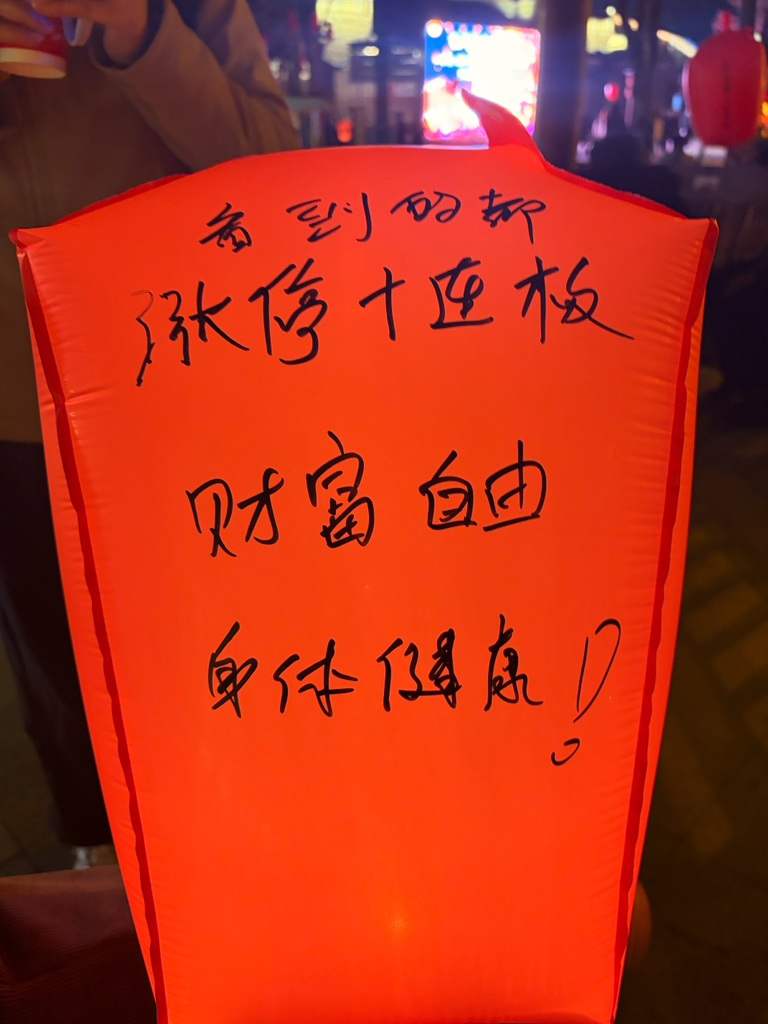 看到的都
涨停十连板
财富自由
身体健康！